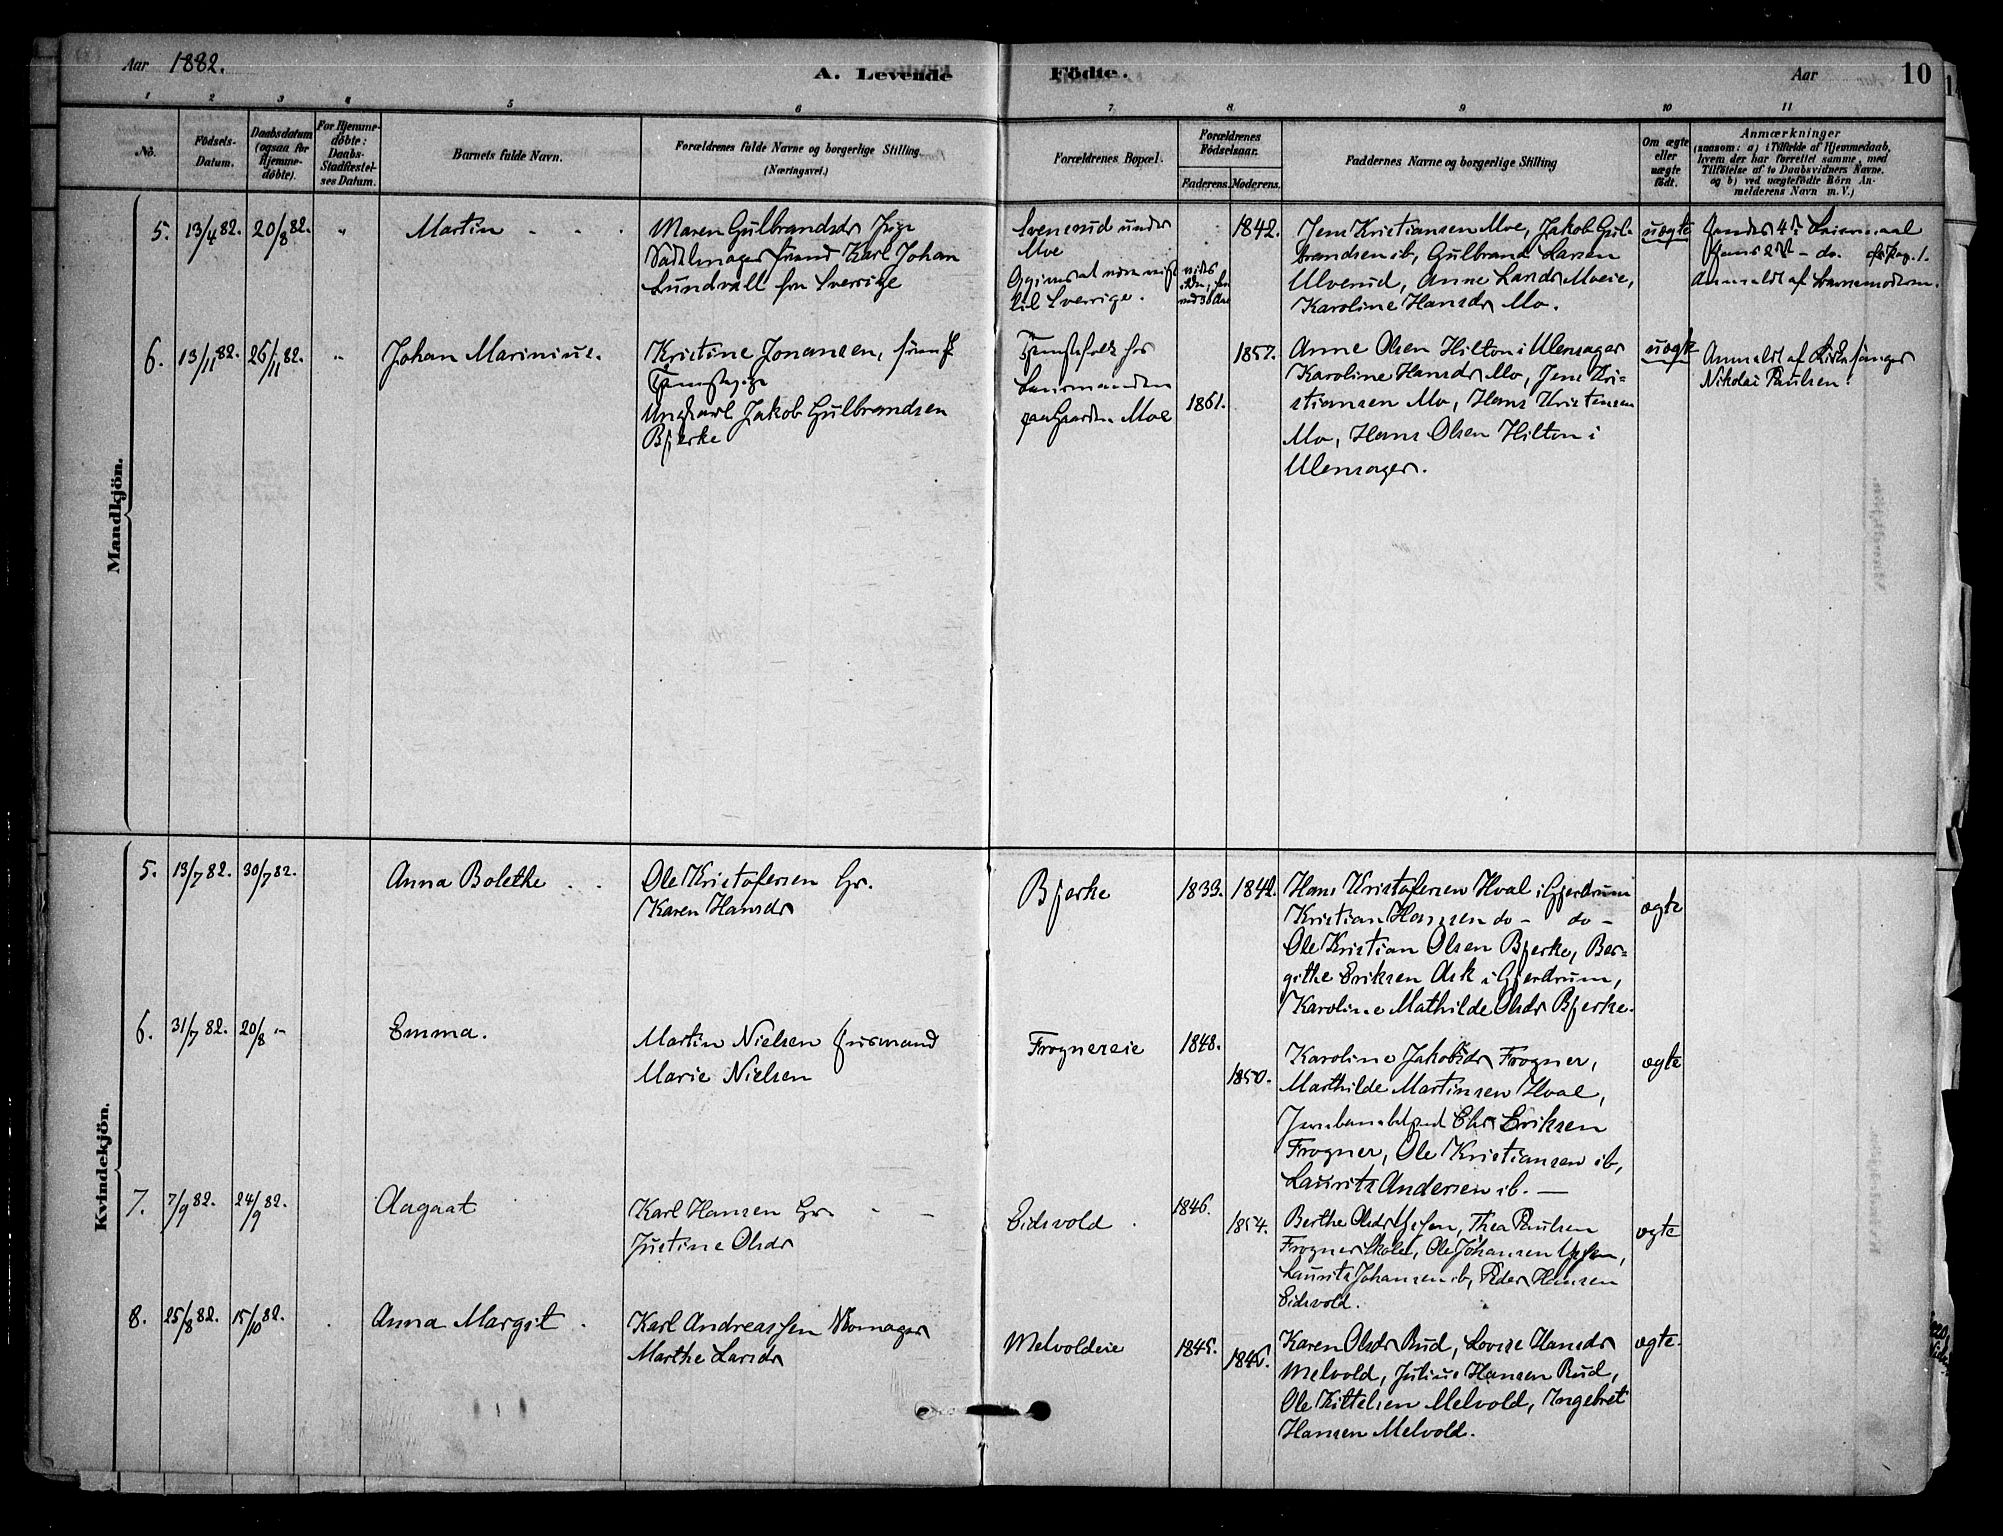 Aar 1882. A. Levende Födte. Aar 10
1 2 3 4 5 6 7 8 9 10 11
No.
Födsels-Datum.
Daabsdatum (ogsaa for Hjemme-döbte).
For Hjemme-döbte: Daabs-Stadfæstel-ses Datum.
Barnets fulde Navn.
Forældrenes fulde Navne og borgerlige Stilling
(Næringsvei.)
Forældrenes Bopæl.
Forældrenes Födselsaar.
Faderens. Moderens.
Faddernes Navne og borgerlige Stilling
Om ægte eller uægte födt.
Anmærkninger
(saasom: a) i Tilfælde af Hjemmedaab,
hvem der har forrettet samme, med
Tilföielse af to Daabsvidners Navne.
og b) ved uægtefödte Börn An-
melderens Navn m. V.)
Mandkjön.
5. 13/4 82. 20/8 82. " Martin
Maren Gulbrandsdr Pige
Sadelmager svend Karl Johan
Lundvall fra Sverrige
Svenerud under
Moe
til Sverrige.
1842.
Jens Kristiansen Moe, Jakob Gul-
brandsen ib, Gulbrand Larsen
Ulverud, Anne Larsdr Moeie,
Karoline Hansdr Mo.
uægte
Hendes 4de Leiermaal
Hans 2det - do.
Anmeldt af Barnemoderen.
6. 13/11 82. 26/11 82. " Johan Marinius.
Kristine Johansen,
Tjenstepige
Ungkarl Jakob Gulbrandsen
Bjerke
Tjenestefolk hos
Lensmanden
paa Gaarden Moe
1861. 1857.
Anne Olsen Hilton i Ulensager
Karoline Hansdr Mo, Jens Kri-
stiansen Mo, Hans Kristensen
Mo, Hans Olsen Hilton i
Ulensager.
uægte
Anmeldt af Kirkesanger
Nikolai Paulsen.
Kvindekjön.
5. 13/7 82. 30/7 82. Anna Bolethe
Ole Kristofersen Gr.
Karen Hansdr
Bjerke 1833. 1842.
Hans Kristofersen Hval i Gjerdrum
Kristian Hansen do - do -
Ole Kristian Olsen Bjerke, Ber-
githe Eriksen Ask i Gjerdrum,
Karoline Mathilde Olsdr Bjerke.
ægte
6. 31/7 82. 20/8 - Emma.
Martin Nielsen Husmand
Marie Nielsen
Frognereie 1848. 1850.
Karoline Jakobsdr Frogner,
Marthilde Martinsen Hval,
Eriksen
Frogner, Ole Kristiansen ib,
Laurits Andersen ib. —
ægte
7. 7/9 82. 24/9 82. Aagaat
Karl Hansen Gr.
Justine Olsdr
Eidsvold 1846. 1854.
Berthe Olsdr, Thea Paulsen
Frogner Skole, Ole Johansen
Laurits Johansen ib, Peder Hansen
Eidsvold.
ægte
8. 25/8 82. 15/10 82. Anna Margit
Karl Andreassen Skomager
Marthe Larsdr
Melvoldeie 1845. 1846.
Karen Olsdr Rud, Lovise Hansdr
Melvold, Julius Hansen Rud,
Ole Kittelsen Melvold, Ingebret
Hansen Melvold.
ægte.